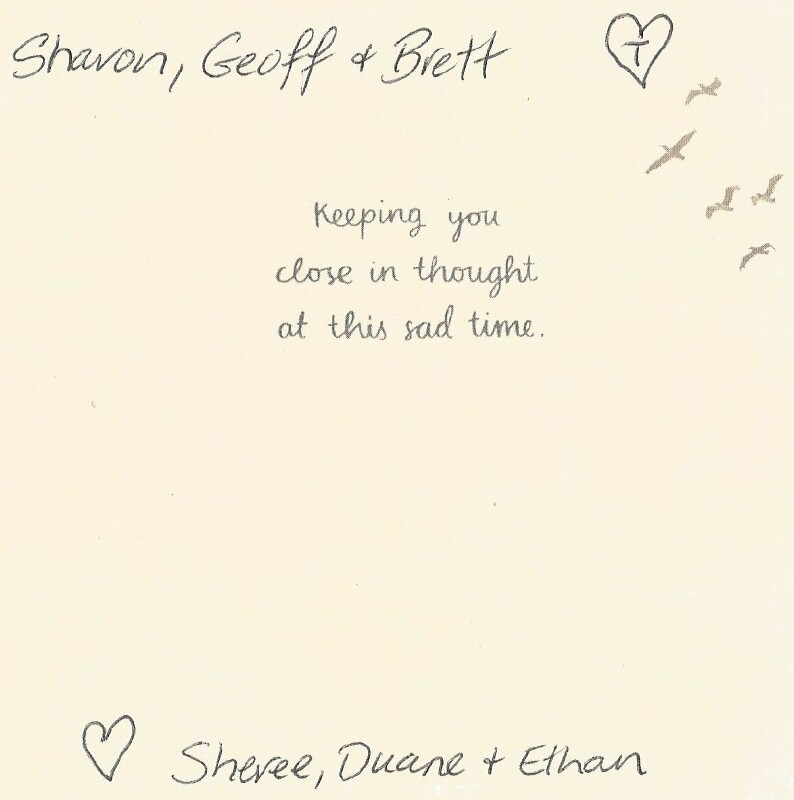 Sharon, Geoff & Brett
Keeping you
close in thought
at this sad time.
Sheree, Duane + Ethan